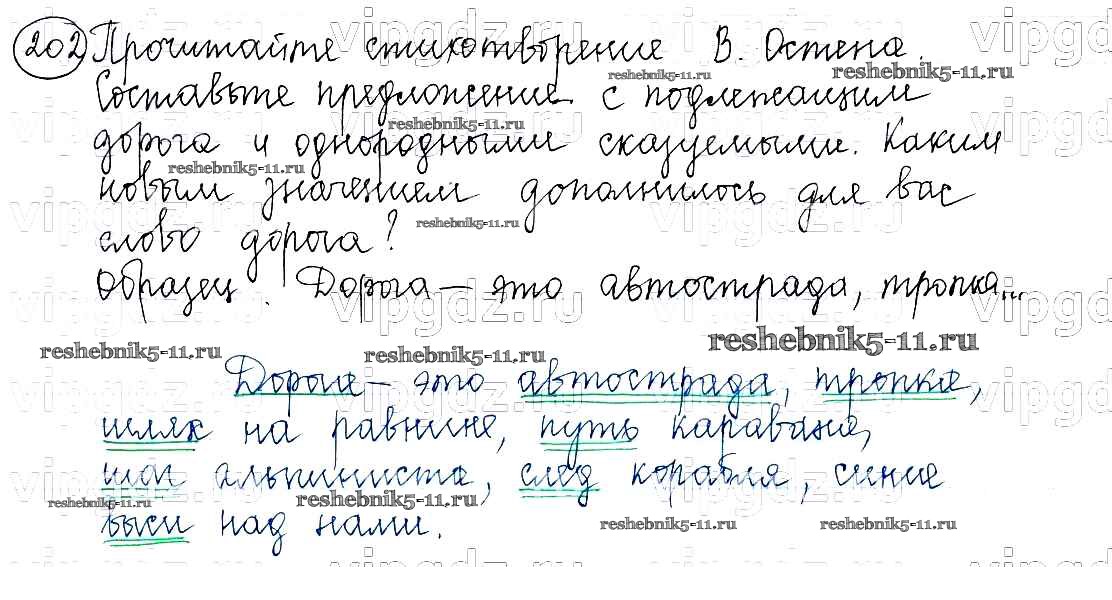 202 Прочитайте стихотворение В. Остена.
Составьте предложение с подлежащим
дорога и однородными сказуемыми. Каким
новым значением дополнилось для вас
слово дорога?
Образец. Дорога — это автострада, тропка...
Дорога — это автострада, тропка,
шлях на равнине, путь каравана,
шаг альпиниста, след корабля, синие
выси над нами.
reshebnik5-11.ru
vipgdz.ru